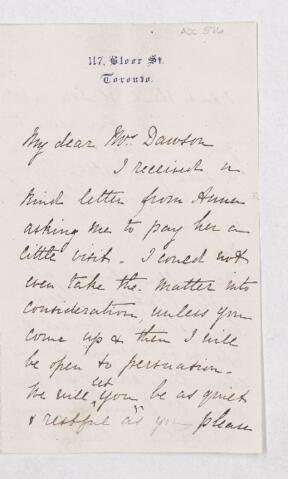 Acc 576
117, Bloor St.
Toronto.
My dear Mrs Dawson
I received a
kind letter from Anna
asking me to pay her a
little visit. I could not
even take the matter into
consideration unless you
come up & then I will
be open to persuation.
We will let you be as quiet
& restful as you please